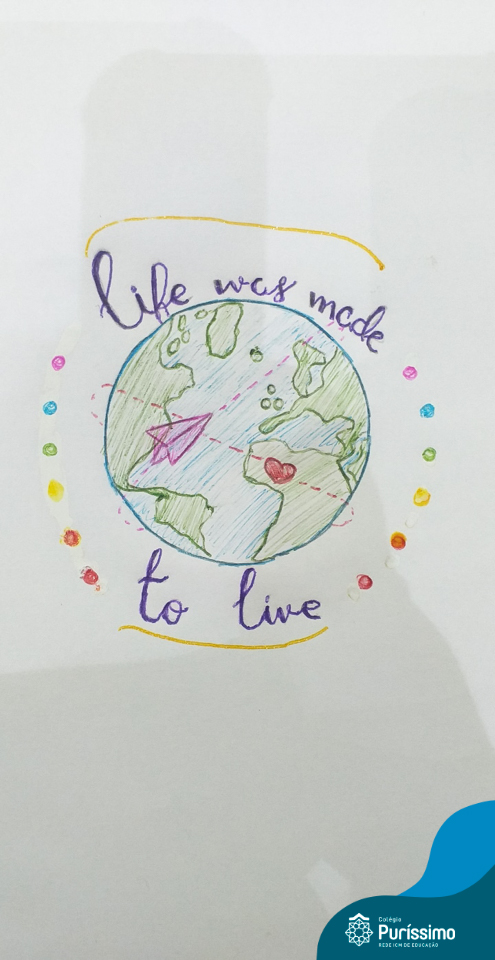 life was made
to live
Colégio
Puríssimo
REDE ICM DE EDUCAÇÃO